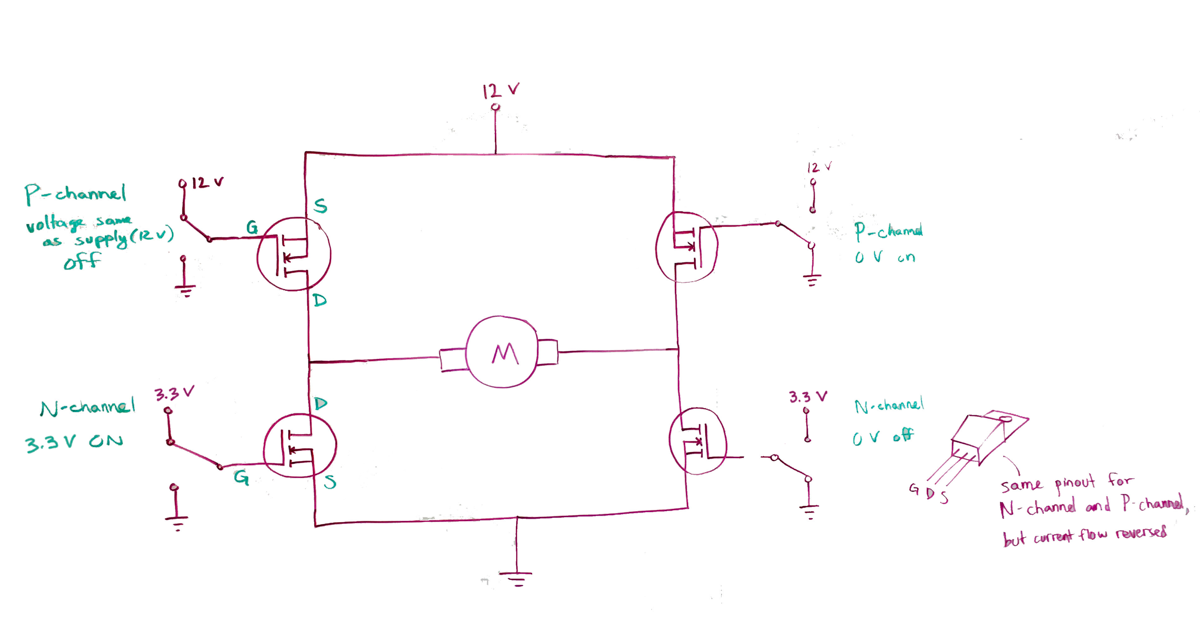 12 V
P-channel
voltage same
as supply (12 v)
off
12 V
G
S
D
12 V
P-channel
0 V on
M
N-channel
3.3 V ON
3.3 V
G
D
S
3.3 V
N-channel
0 V off
G D S
same pinout for
N-channel and P-channel,
but current flow reversed